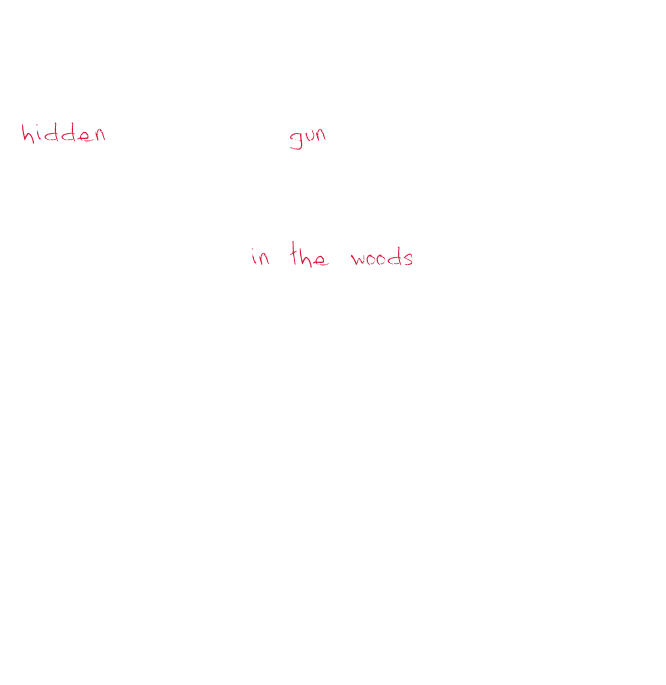 hidden gun
in the woods